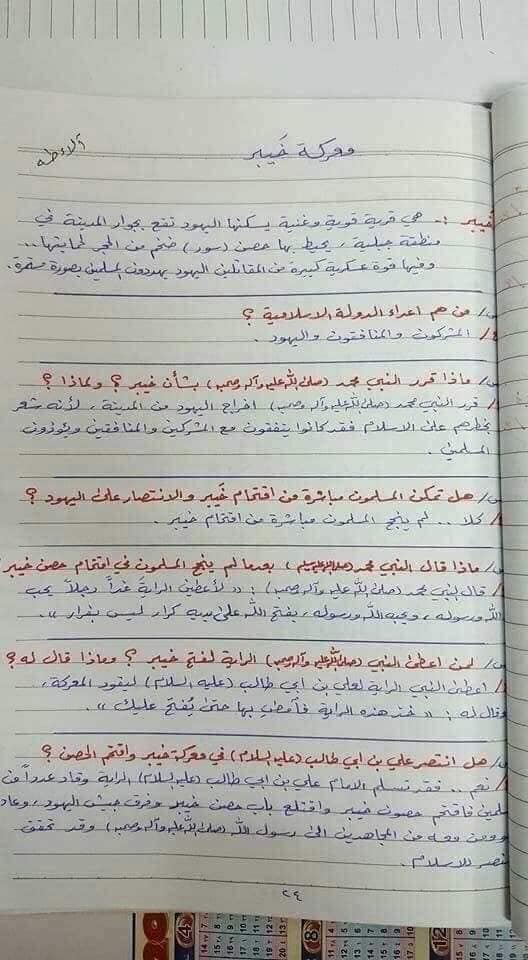 معركة خَيبر
خيبر :- هي قرية قوية وغنية يسكنها اليهود تقع بجوار المدينة في
منطقة جبلية ، يحيط بها حصن (سور) ضخم من الحجر لحمايتها..
وفيها قوة عسكرية كبيرة من المقاتلين اليهود يهددون المسلمين بصورة مستمرة.
س/ من هم اعداء الدولة الاسلامية ؟
ج/ المشركون والمنافقون واليهود .
س/ ماذا قرر النبي محمد (صلى الله عليه وآله وصحبه) بشأن خيبر ؟ ولماذا ؟
ج/ قرر النبي محمد (صلى الله عليه وآله وصحبه) اخراج اليهود من المدينة ، لأنه شعر
بخطرهم على الاسلام فقد كانوا يتفقون مع المشركين والمنافقين ويؤذون
المسلمين .
س/ هل تمكن المسلمون مباشرة من اقتحام خَيبر والانتصار على اليهود ؟
ج/ كلا .. لم ينجح المسلمون مباشرة من اقتحام خيبر .
س/ ماذا قال النبي محمد (صلى الله عليه وآله وسلم) بعدما لم ينجح المسلمون في اقتحام حصن خيبر
ج/ قال النبي محمد (صلى الله عليه وآله وصحبه) : «لأعطين الرايةَ غداً رجلاً يحب
الله ورسوله ، ويحبه الله ورسوله ، يفتح الله على يديه كرار ليس بفرار» .
س/ لمن اعطى النبي (صلى الله عليه وآله وصحبه) الراية لفتح خيبر ؟ وماذا قال له ؟
ج/ اعطى النبي الراية لعلي بن ابي طالب (عليه السلام) ليقود المعركة ،
وقال له : « خذ هذه الراية فأمضِ بها حتى يُفتح عليك » .
س/ هل انتصر علي بن ابي طالب (عليه السلام) في معركة خيبر واقتحم الحصن ؟
ج/ نعم .. فقد تسلم الامام علي بن ابي طالب (عليه السلام) الراية وقاد عدداً من
سلمين فاقتحم حصون خيبر واقتلع باب حصن خيبر وفرق جيش اليهود ، وعاد
ومن معه من المجاهدين الى رسول الله (صلى الله عليه وآله وصحبه) وقد تحقق
نصر للاسلام .
٢٤
4
8
12